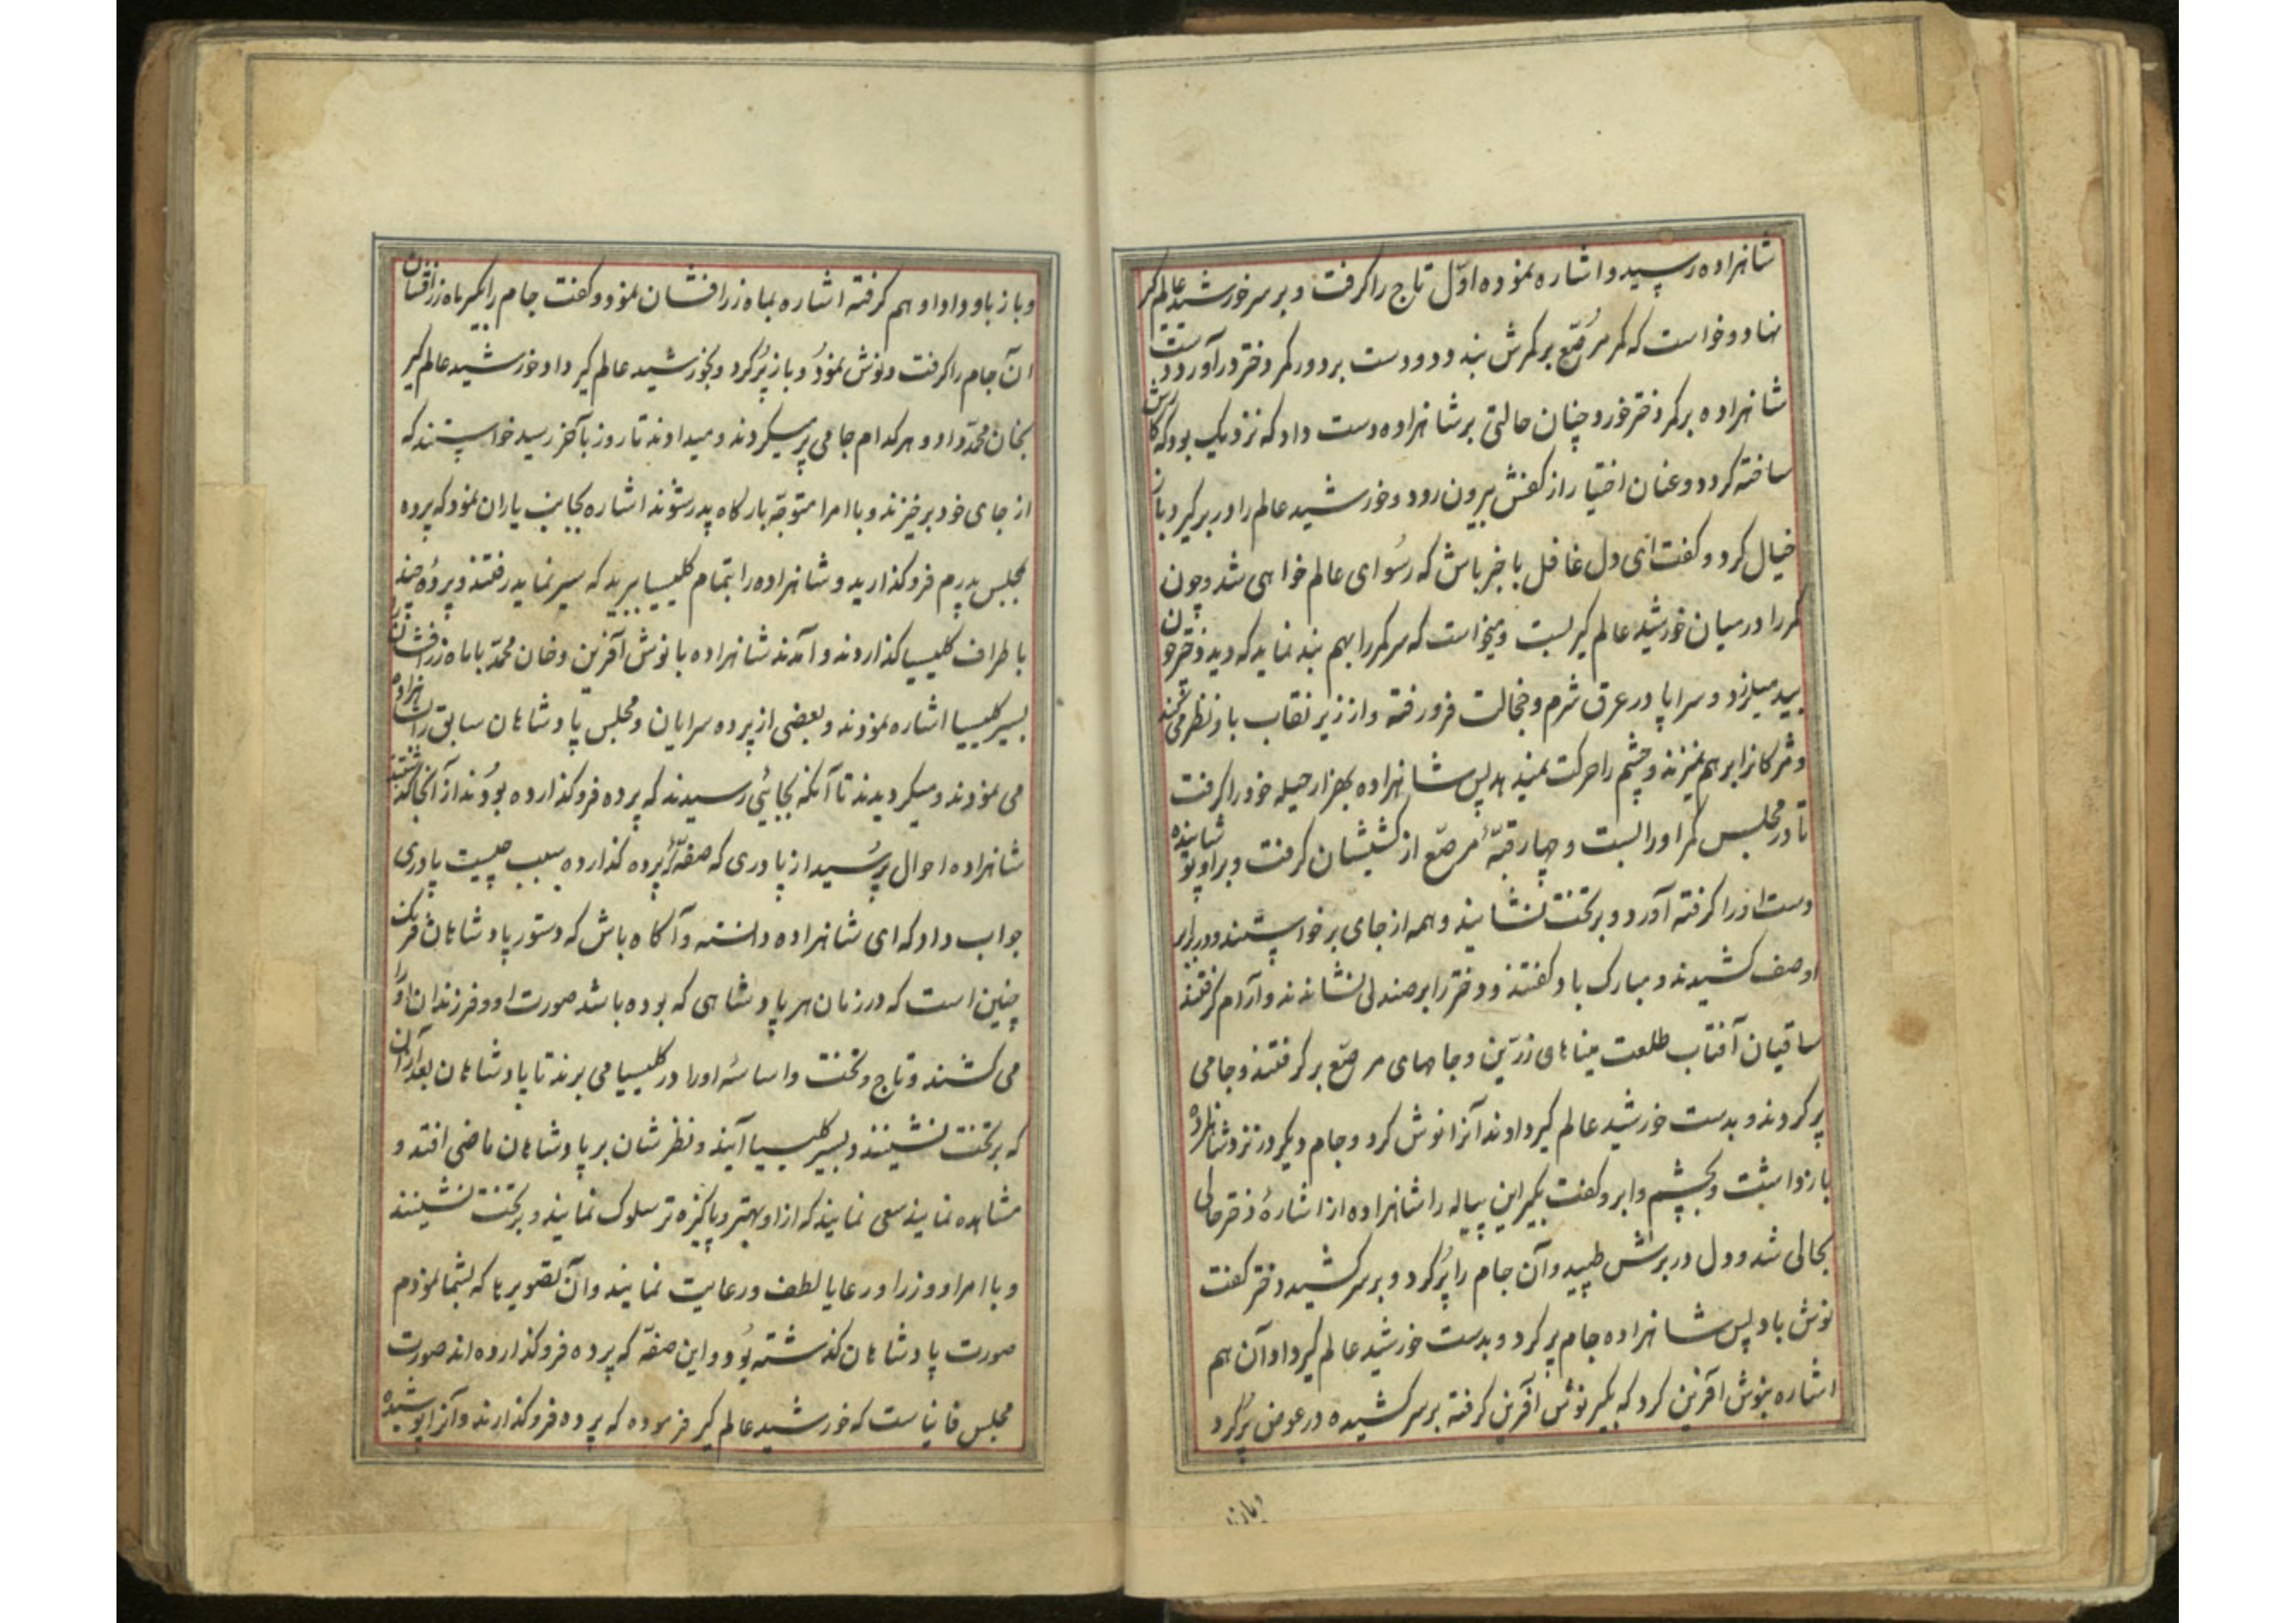 شاهزاده رسید و اشاره نموده اوّل تاج را کرفت و بر سر خورشید عالم کیر
نهاد و خواست که کمر مُرصّع بر کمرش بندد و دو دست بر دور کمر دختر درآورد و دست
شاهزاده بر کمر دختر خورد چنان حالتی بر شاهزاده دست داد که نزدیک بود که کارش
ساخته کردد و عنان اختیار از کفش بیرون رود و خورشید عالم را در بر کیرد باز
خیال کرد و کفت ای دل غافل با خبر باش که رسُوای عالم خواهی شد و چون
کمر را در میان خورشید عالم کیر بست و میخواست که سر کمر را بهم بند نماید که دید دختر چون
بید میلرزد و سراپا در عرق شرم و خجالت فرو رفته و از زیر نقاب باو نظر می کند
و مژکانرا بر هم نمیزند و چشم را حرکت نمیدهد پس شاهزاده بهزار حیله خود را کرفت
تا در مجلس کمر او را بست و چهار قبّهٔ مرصّع از کشیشان کرفت و بر او پوشانیده
دست او را کرفته آورد و بر تخت نشانید و همه از جای برخواستند و در برابر
او صف کشیدند و مبارک باد کفتند و دختر را بر صندلی نشاندند و آرام کرفتند
ساقیان آفتاب طلعت میناهای زرّین و جامهای مرصّع بر کرفتند و جامی
پر کردند و بدست خورشید عالم کیر دادند آنرا نوش کرد و جام دیکر در نزد شاهزاده
باز داشت و بچشم و ابرو کفت بکیر این پیاله را شاهزاده از اشارهٔ دختر حالی
بحالی شد و دل در برش طپید و آن جام را پُر کرد و بر سر کشید دختر کفت
نوش باد پس شاهزاده جام پر کرد و بدست خورشید عالم کیر داد آن هم
اشاره بنوش آفرین کرد که بکیر نوش آفرین کرفته بر سر کشیده در عوض پُر کرد
و باز باو
و باز باو داد او هم کرفته اشاره بماه زرافشان نمود و کفت جام را بکیر ماه زرافشان
آن جام را کرفت و نوش نمُود و باز پُر کرد و بخورشید عالم کیر داد و خورشید عالم کیر
بخان محمّد داد و هر کدام جامی پر میکردند و میدادند تا روز بآخر رسید خواستند که
از جای خود برخیزند و با امرا متوجّه بارکاه پدر شوند اشاره بجانب یاران نمود که پرده
مجلس پدرم فرو کذارید و شاهزاده را بتمام کلیسیا ببرید که سیر نماید رفتند و پردهٔ چند
باطراف کلیسیا کذاردند و آمدند شاهزاده با نوش آفرین و خان محمّد با ماه زرافشان را
بسیر کلیسیا اشاره نمودند و بعضی از پرده سرایان و مجلس پادشاهان سابق را بشاهزاده
می نمودند و میکردیدند تا آنکه بجائی رسیدند که پرده فرو کذارده بوُدند از آنجا کذشتند
شاهزاده احوال پرُسید از پادری که صفّه را پرده کذارده سبب چیست پادری
جواب داد که ای شاهزاده دانسته و آکاه باش که دستور پادشاهان فرنک
چنین است که در زمان هر پادشاهی که بوده باشد صورت او و فرزندان او را
می کشند و تاج و تخت و اساسهٔ او را در کلیسیا می برند تا پادشاهان بعد از آن
که بر تخت نشینند و بسیر کلیسیا آیند و نظرشان بر پادشاهان ماضی افتد و
مشاهده نمایند سعی نمایند که از او بهتر و پاکیزه تر سلوک نمایند و بر تخت نشینند
و با امرا و وزرا و رعایا لطف و رعایت نمایند و آن تصویرها که بشما نمودم
صورت پادشاهان کذشته بوُد و این صفّه که پرده فرو کذارده اند صورت
مجلس است که خورشید عالم کیر فرموده که پرده فرو کذارند و آنرا پوشیده